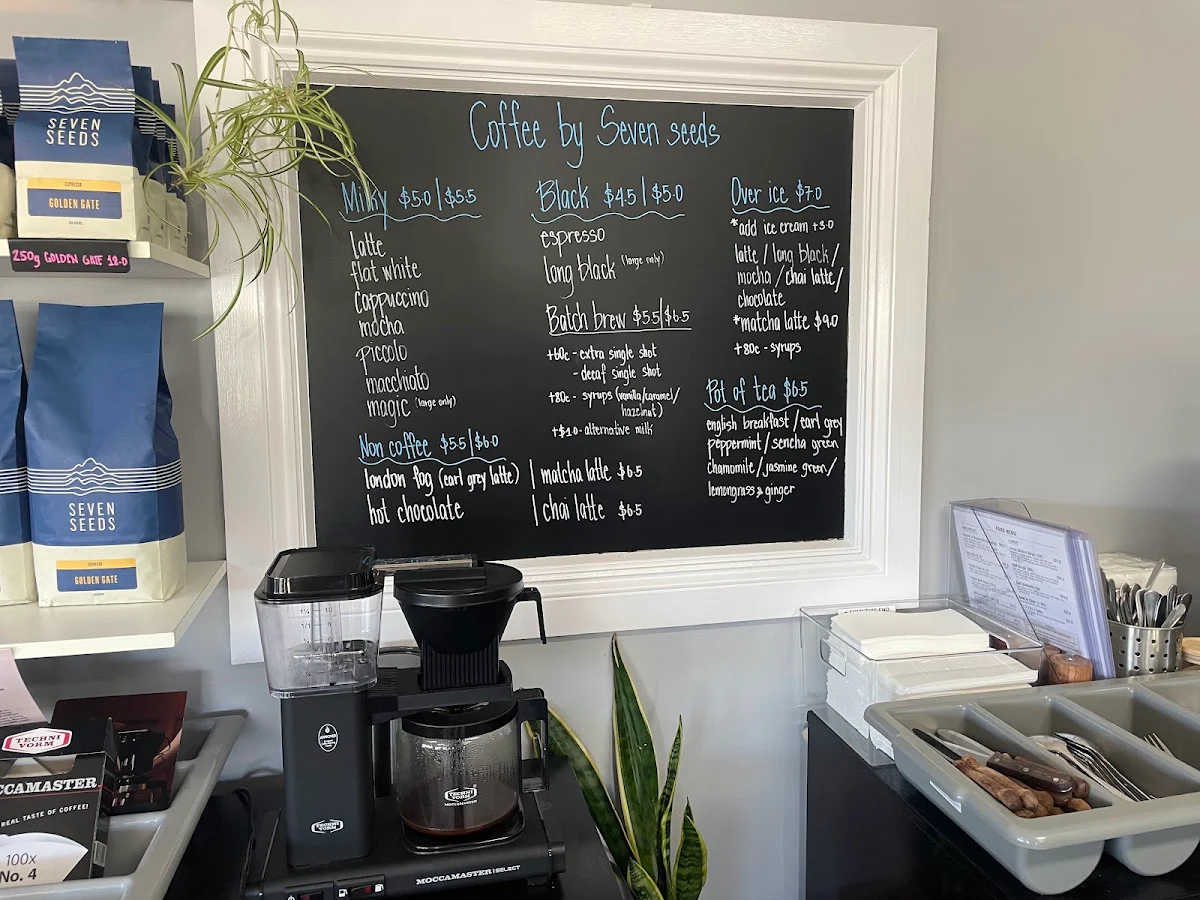 Coffee by Seven seeds
Milky $5.0 | $5.5
latte
flat white
cappuccino
mocha
piccolo
macchiato
magic (large only)
Non coffee $5.5 | $6.0
london fog (earl grey latte)
hot chocolate
| matcha latte $6.5
| chai latte $6.5
Black $4.5 | $5.0
espresso
long black (large only)
Batch brew $5.5 | $6.5
+60c - extra single shot
- decaf single shot
+80c - syrups (vanilla/caramel/
hazelnut)
+$1.0 - alternative milk
Over ice $7.0
*add ice cream +3.0
latte / long black /
mocha / chai latte /
chocolate
*matcha latte $9.0
+80c - syrups
Pot of tea $6.5
english breakfast / earl grey
peppermint / sencha green
chamomile / jasmine green /
lemongrass & ginger
SEVEN
SEEDS
ESPRESSO
GOLDEN GATE
250g GOLDEN GATE 18.0
SEVEN
SEEDS
ESPRESSO
GOLDEN GATE
TECHNI
VORM
OCCAMASTER
REAL TASTE OF COFFEE!
100x
No. 4
TECHNI
VORM
TECHNI
VORM
MOCCAMASTER
MOCCAMASTER | SELECT
FOOD MENU